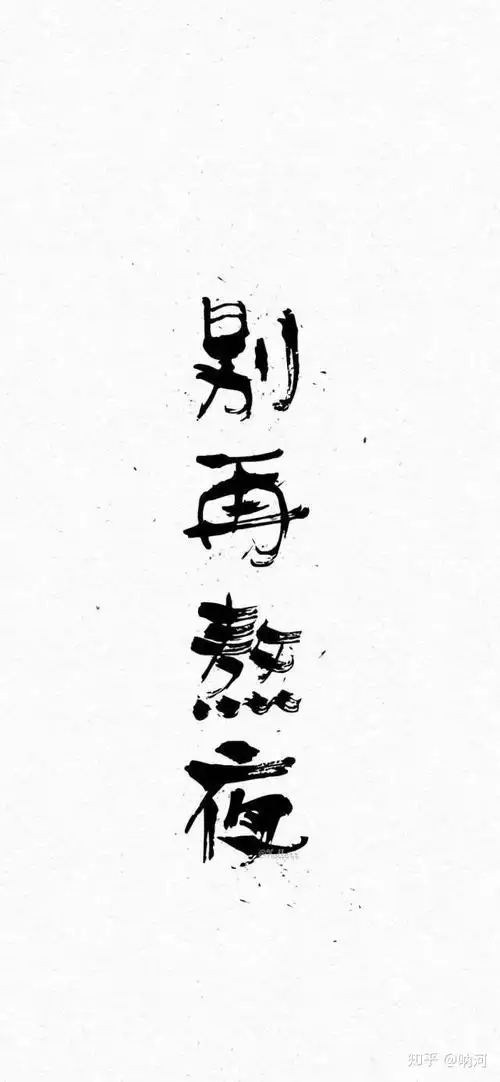 别再熬夜
知乎 @呐河